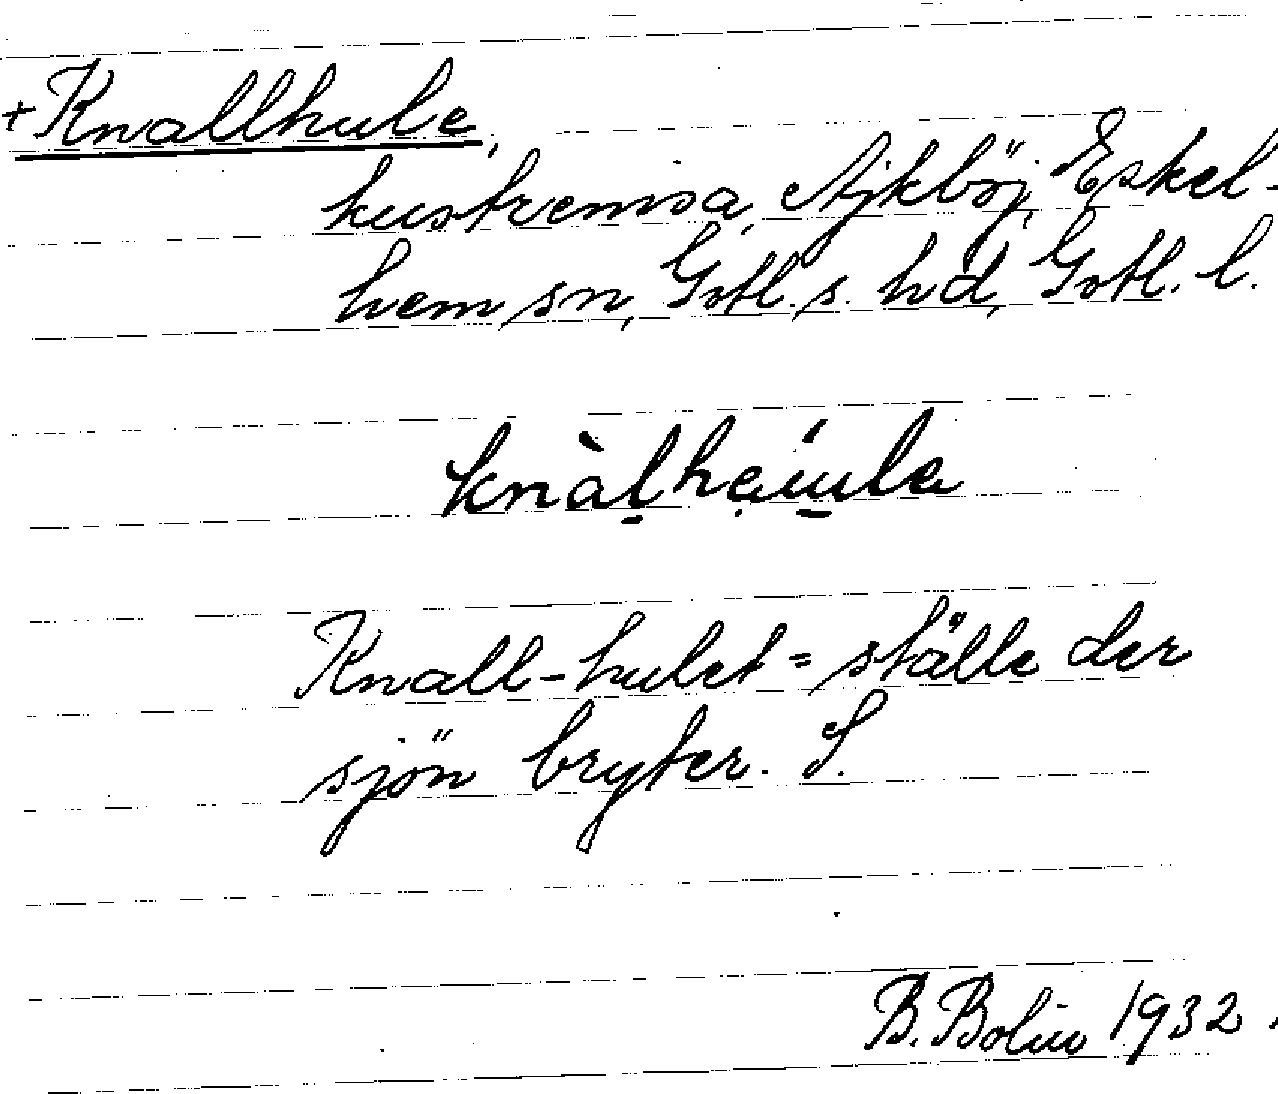 +Knallhule,
kustremsa, Ajkböj, Eskel-
hem sn, Gotl. s. hd, Gotl. l.
knàlhau̇la
Knall-hulet = ställe der
sjön bryter. S.
B. Bolin 1932.